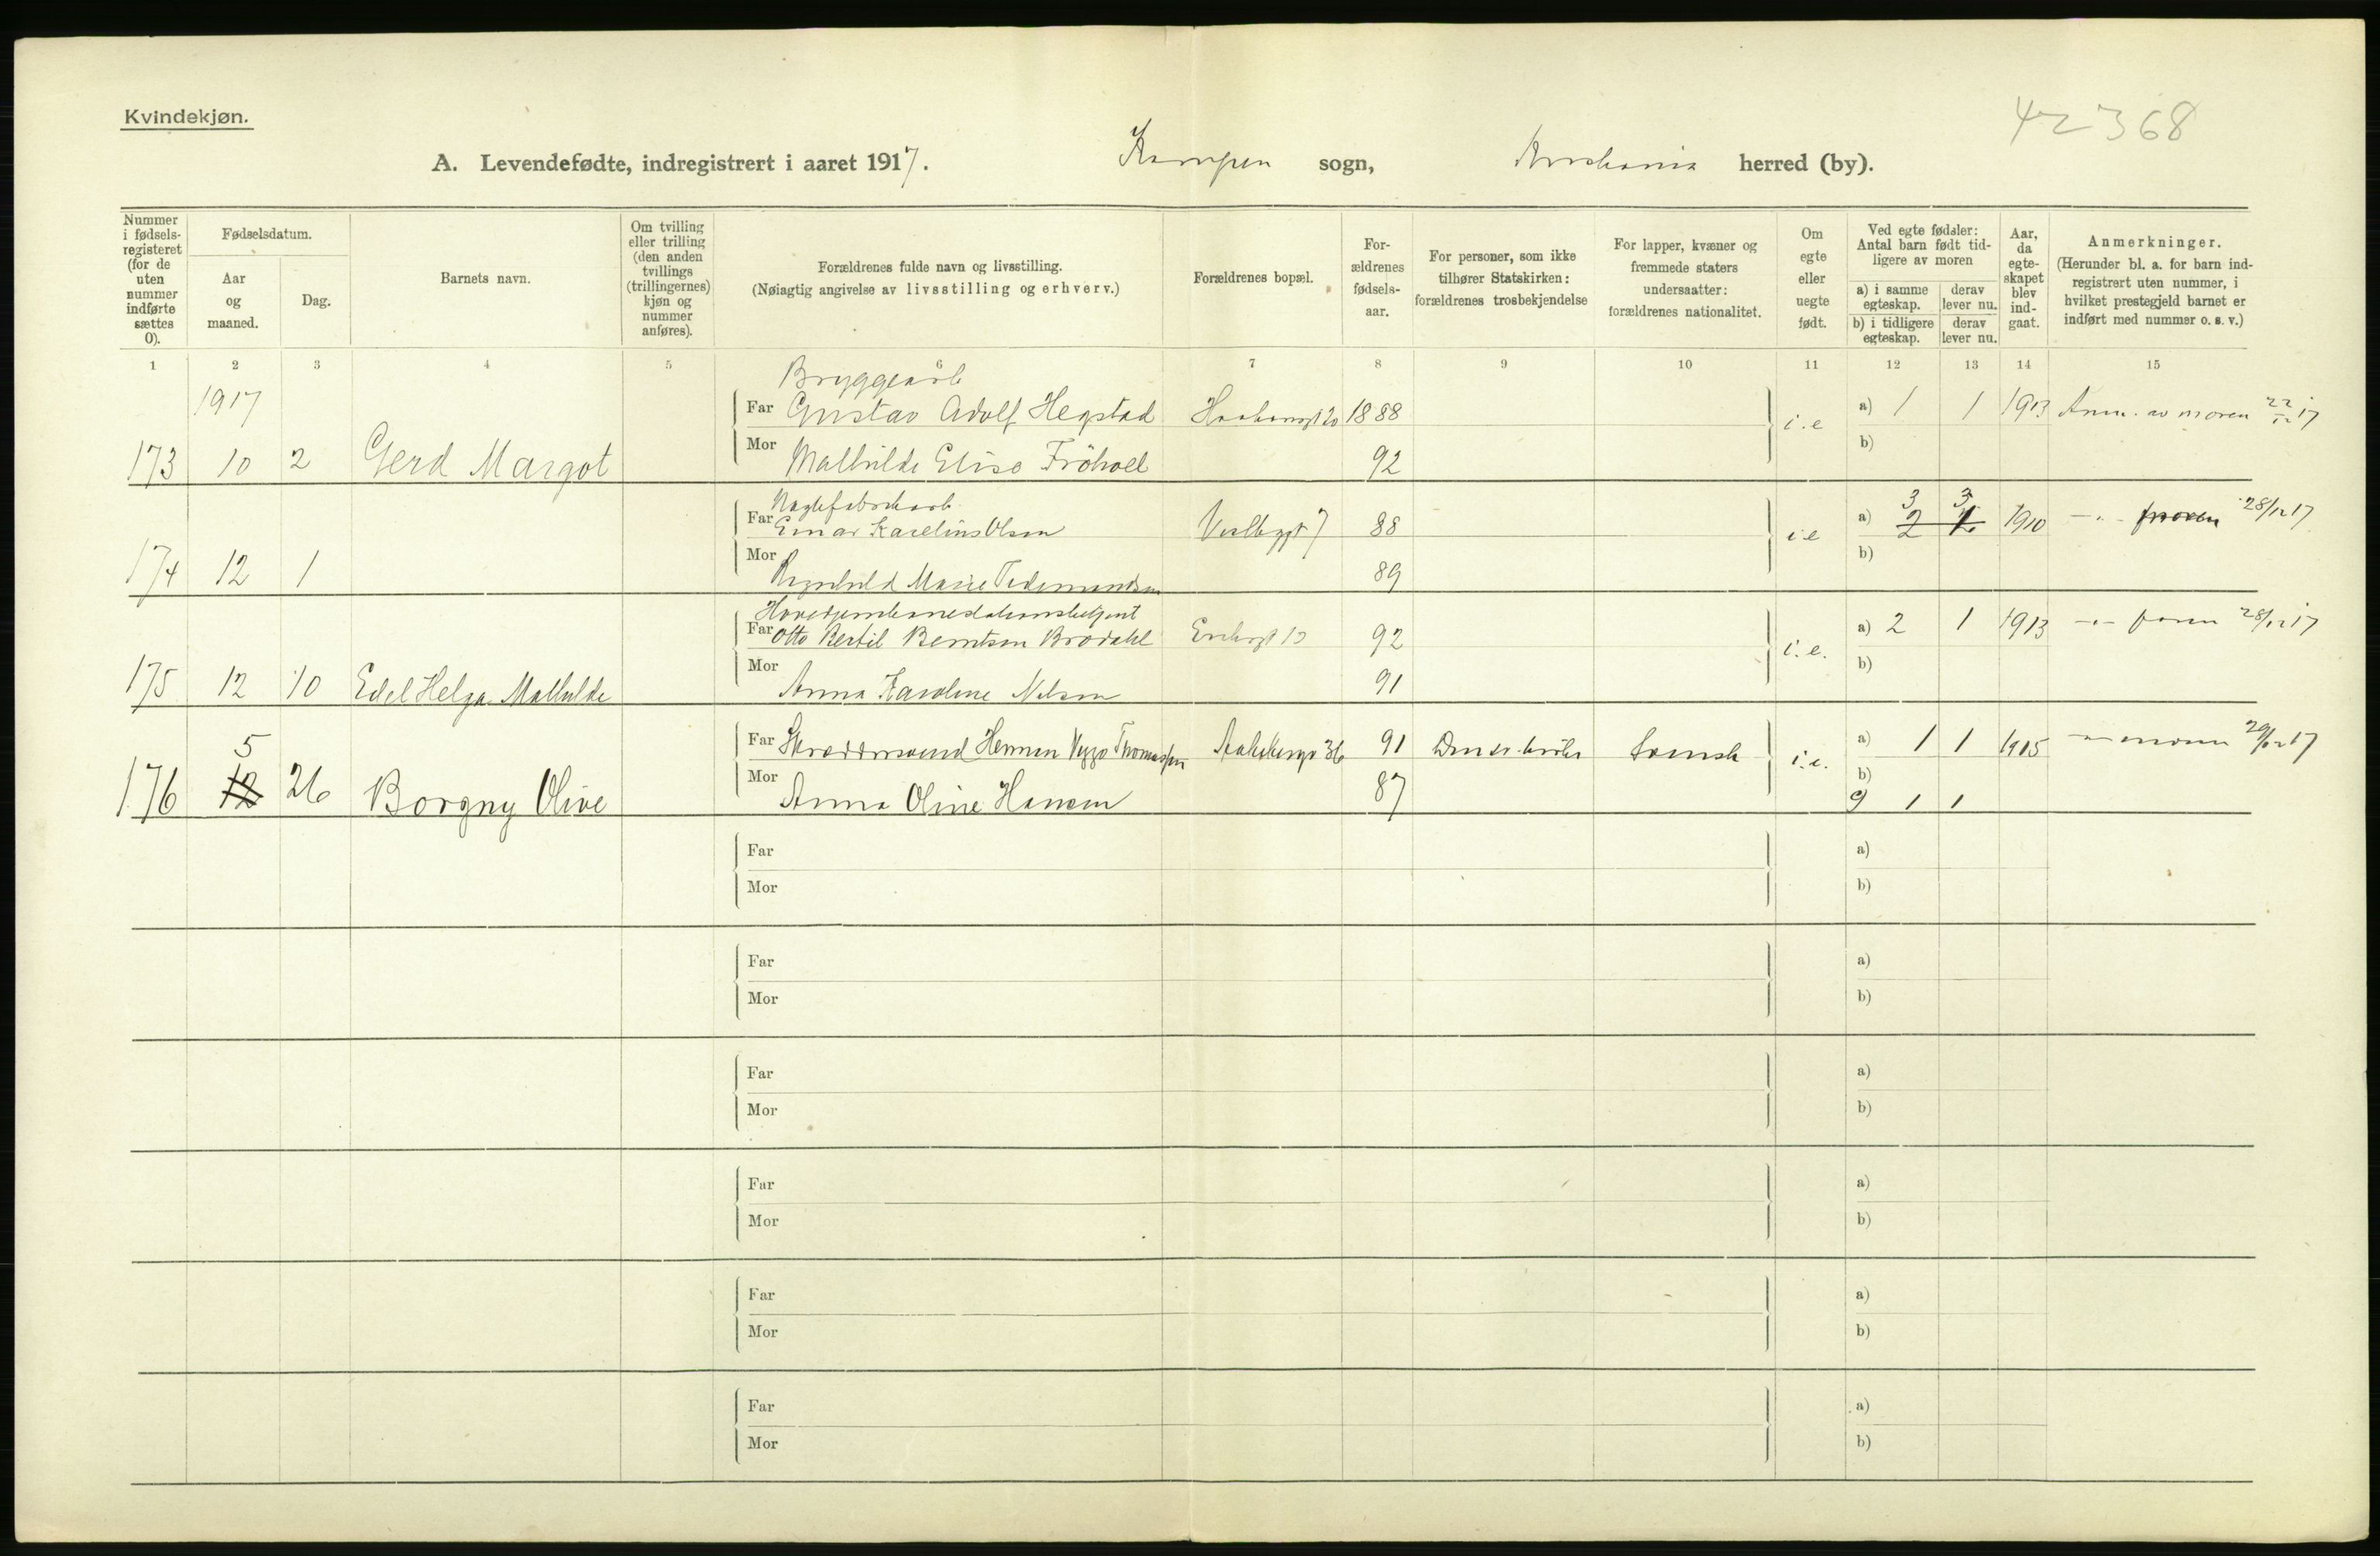 Kvindekjøn.
42368
A. Levendefødte, indregistrert i aaret 1917. Kampen sogn, Kristiania herred (by).
Nummer i fødsels-registeret (for de uten nummer indførte sættes 0).
Fødselsdatum.
Aar og maaned.
Dag.
Barnets navn.
Om tvilling eller trilling (den anden tvillings (trillingernes) kjøn og nummer anføres).
Forældrenes fulde navn og livsstilling.
(Nøiagtig angivelse av livsstilling og erhverv.)
Forældrenes bopæl.
For-ældrenes fødsels-aar.
For personer, som ikke tilhører Statskirken: forældrenes trosbekjendelse
For lapper, kvæner og fremmede staters undersaatter: forældrenes nationalitet.
Om egte eller uegte født.
Ved egte fødsler: Antal barn født tid-ligere av moren
a) i samme egteskap. derav lever nu.
b) i tidligere egteskap. derav lever nu.
Aar, da egte-skapet blev ind-gaat.
Anmerkninger.
(Herunder bl. a. for barn ind-registrert uten nummer, i hvilket prestegjeld barnet er indført med nummer o. s. v.)
1 2 3 4 5 6 7 8 9 10 11 12 13 14 15
1917
Bryggearb
Far Gustav Adolf Hegstad 1888 i.e a) 1 1 1913 Anm. av moren 22/12 17
173 10 2 Gerd Margot
Mor Mathilde Elise Fröhoel 92 b)
Naglefabrikarb.
Far Einar Karelius Olsen 7 88 i.e a) 3 2 3 1910 -"- 28/12 17
174 12 1
Mor Ragnhild Marie Tidemandsen 89 b)
Far Otto Bertil Berntsen Brodahl 92 i.e. a) 2 1 1913 -"- faren 28/12 17
175 12 10 Edel Helga Mathilde
Mor Anna Karoline Nilsen 91 b)
Far Skræddersvend Herman Viggo Thomassen 36 91 Den ev. luth. Svensk i.e. a) 1 1 1915 -"- moren 29/12 17
176 12 5 26 Borgny Olive
Mor Anna Oline Hansen 87 b)
9 1 1
Far a)
Mor b)
Far a)
Mor b)
Far a)
Mor b)
Far a)
Mor b)
Far a)
Mor b)
Far a)
Mor b)